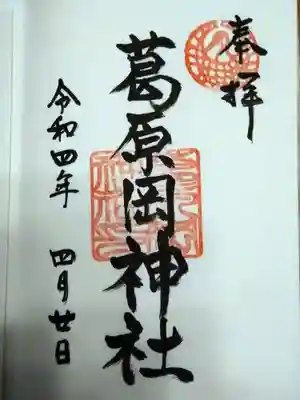 奉拝
葛原岡神社
令和四年 四月廿日